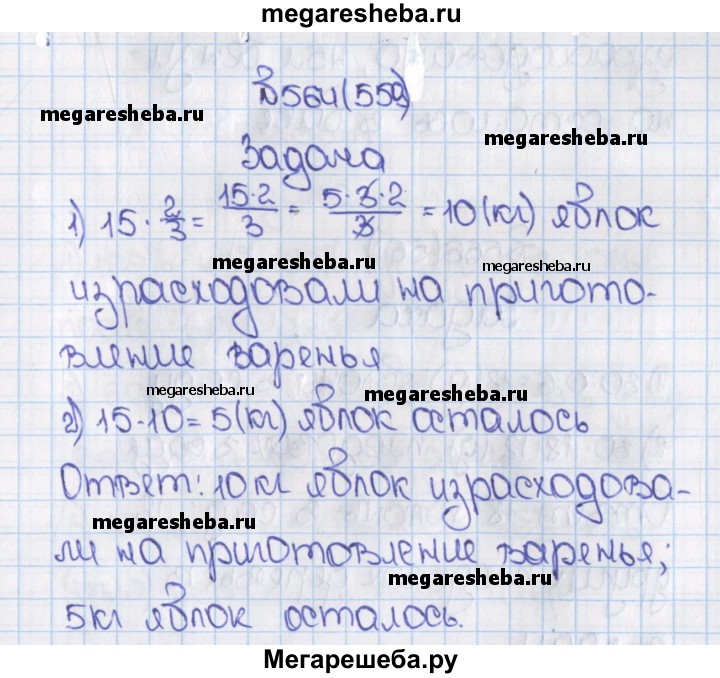 megaresheba.ru
№564(559)
megaresheba.ru
megaresheba.ru
Задача
1) 15 · 2/3 = 15·2/3 = 5·3·2/3 = 10(кг) яблок
megaresheba.ru
megaresheba.ru
израсходовали на пригото-
вление варенья
megaresheba.ru
megaresheba.ru
2) 15-10=5(кг) яблок осталось
Ответ: 10кг яблок израсходова-
megaresheba.ru
ли на приготовление варенья;
megaresheba.ru
5кг яблок осталось.
Мегарешеба.ру